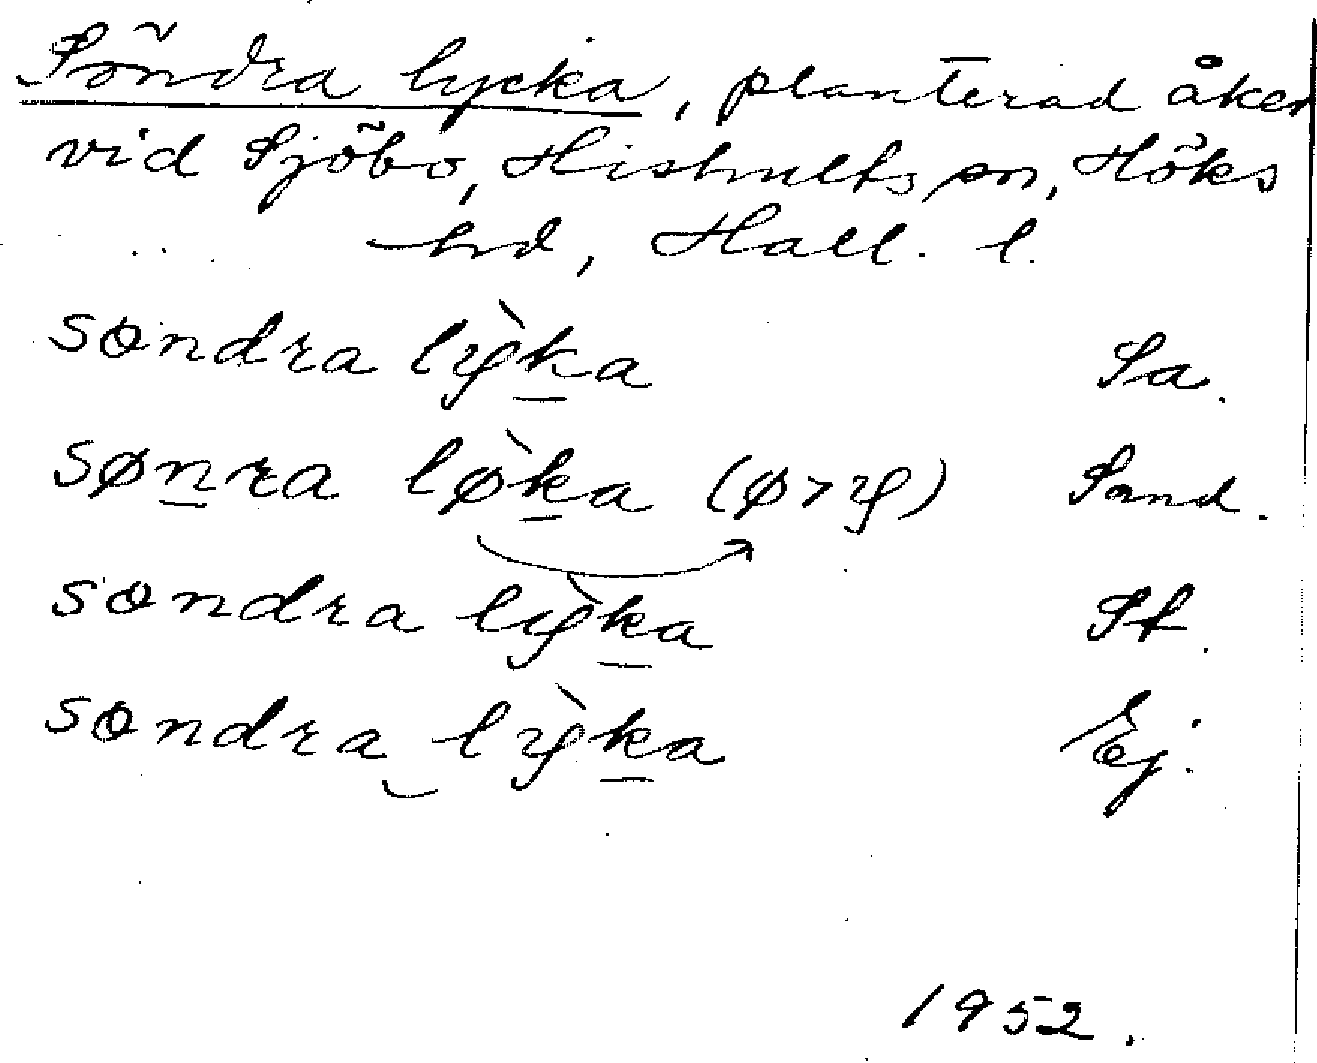 Söndra lycka, planterad åker
vid Sjöbo, Hishults sn, Höks
hd, Hall. l.
søndra lỳka Sa.
sønra lø̀ka (ø>y) Sand.
søndra lỳka Sf.
søndra lỳka Ej.
1952.